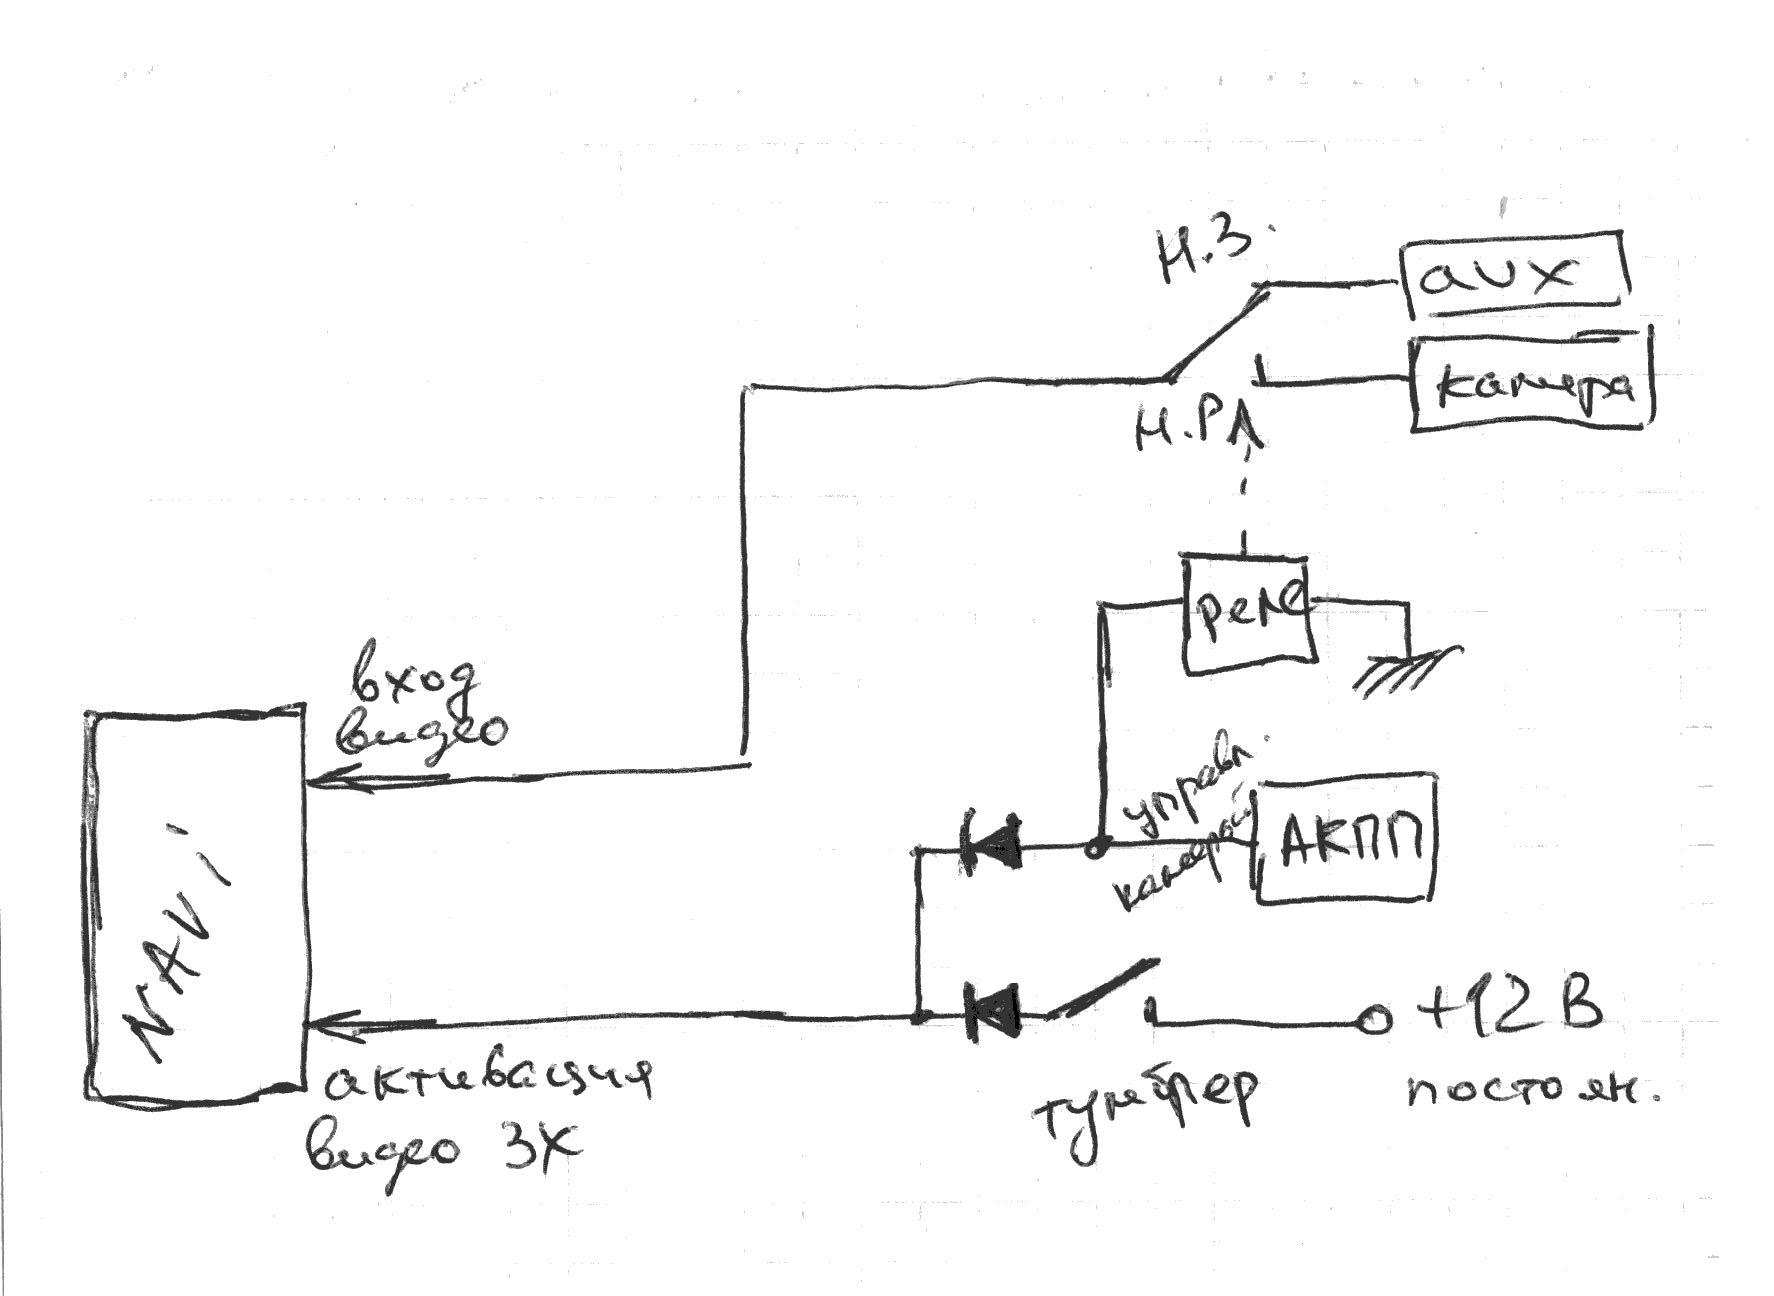 Н.З.
aux
камера
Н.Р
реле
вход
видео
управл.
камерой
АКПП
NAVi
+12 В
постоян.
активация
видео ЗХ
тумблер